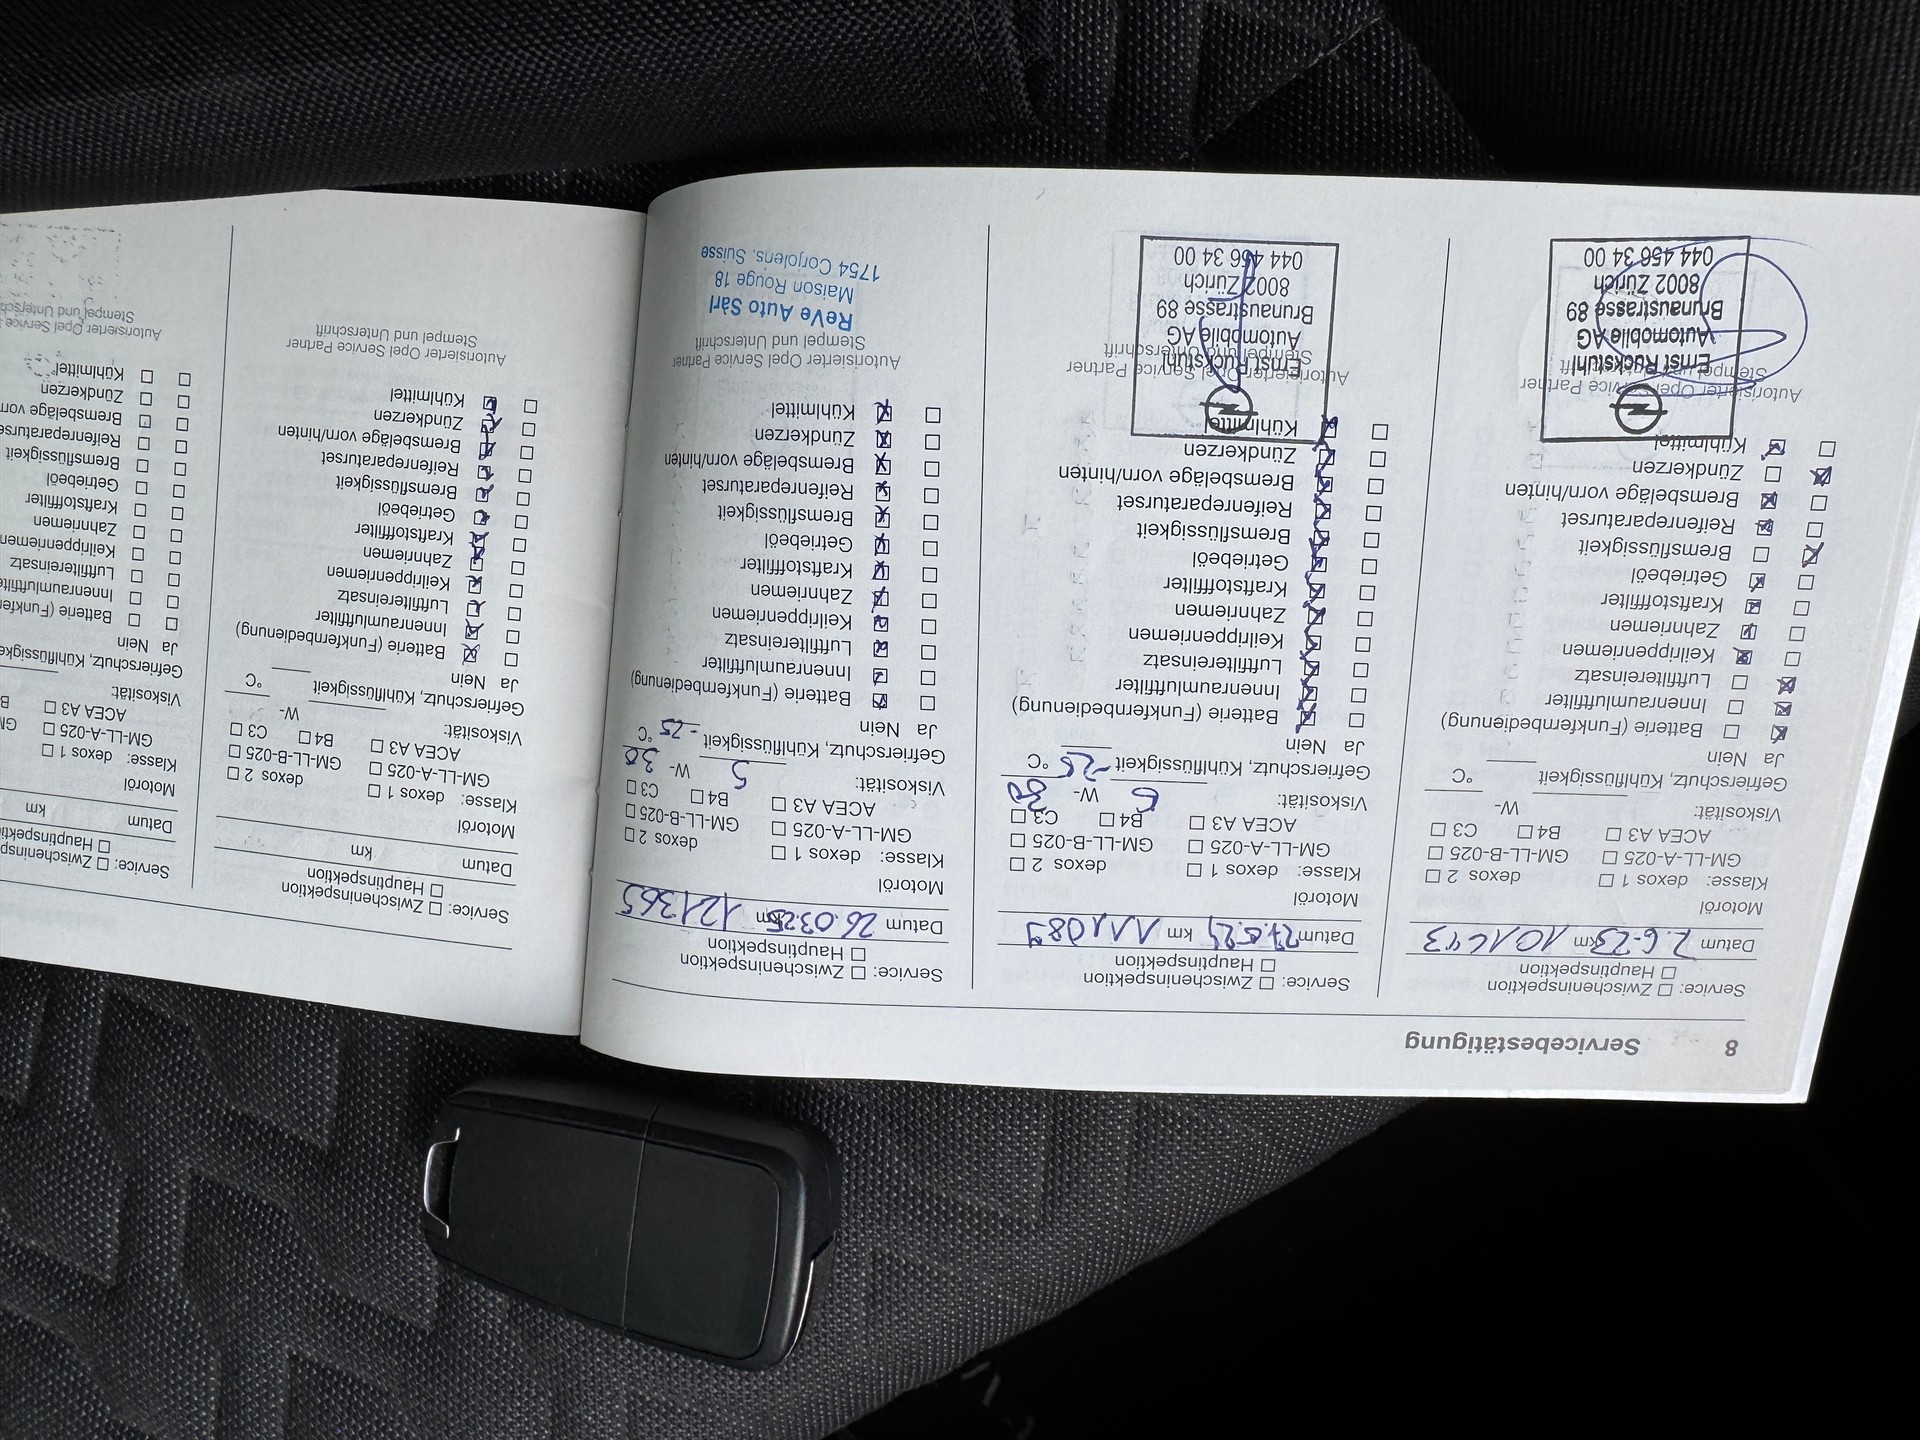 8 Servicebestätigung
Service: Zwischeninspektion
Hauptinspektion
Datum 2.6.23 km 101643
Motoröl
Klasse: dexos 1 dexos 2
GM-LL-A-025 GM-LL-B-025
ACEA A3 B4 C3
Viskosität: W-
Gefrierschutz, Kühlflüssigkeit °C
Ja Nein
Batterie (Funkfernbedienung)
Innenraumluftfilter
Luftfiltereinsatz
Keilrippenriemen
Zahnriemen
Kraftstofffilter
Getriebeöl
Bremsflüssigkeit
Reifenreparaturset
Bremsbeläge vorn/hinten
Zündkerzen
Kühlmittel
Autorisierter Opel Service Partner
Stempel und Unterschrift
Ernst Ruckstuhl
Automobile AG
Brunaustrasse 89
8002 Zürich
044 456 34 00
Service: Zwischeninspektion
Hauptinspektion
Datum km 111089
Motoröl
Klasse: dexos 1 dexos 2
GM-LL-A-025 GM-LL-B-025
ACEA A3 B4 C3
Viskosität: 5 W- 30
Gefrierschutz, Kühlflüssigkeit -25 °C
Ja Nein
Batterie (Funkfernbedienung)
Innenraumluftfilter
Luftfiltereinsatz
Keilrippenriemen
Zahnriemen
Kraftstofffilter
Getriebeöl
Bremsflüssigkeit
Reifenreparaturset
Bremsbeläge vorn/hinten
Zündkerzen
Kühlmittel
Autorisierter Opel Service Partner
Stempel und Unterschrift
Ernst Ruckstuhl
Automobile AG
Brunaustrasse 89
8002 Zürich
044 456 34 00
Service: Zwischeninspektion
Hauptinspektion
Datum 26.03.25 km 121365
Motoröl
Klasse: dexos 1 dexos 2
GM-LL-A-025 GM-LL-B-025
ACEA A3 B4 C3
Viskosität: 5 W- 30
Gefrierschutz, Kühlflüssigkeit -25 °C
Ja Nein
Batterie (Funkfernbedienung)
Innenraumluftfilter
Luftfiltereinsatz
Keilrippenriemen
Zahnriemen
Kraftstofffilter
Getriebeöl
Bremsflüssigkeit
Reifenreparaturset
Bremsbeläge vorn/hinten
Zündkerzen
Kühlmittel
Autorisierter Opel Service Partner
Stempel und Unterschrift
ReVe Auto Sàrl
Maison Rouge 18
1754 Corjolens, Suisse
Service: Zwischeninspektion
Hauptinspektion
Datum km
Motoröl
Klasse: dexos 1 dexos 2
GM-LL-A-025 GM-LL-B-025
ACEA A3 B4 C3
Viskosität: W-
Gefrierschutz, Kühlflüssigkeit °C
Ja Nein
Batterie (Funkfernbedienung)
Innenraumluftfilter
Luftfiltereinsatz
Keilrippenriemen
Zahnriemen
Kraftstofffilter
Getriebeöl
Bremsflüssigkeit
Reifenreparaturset
Bremsbeläge vorn/hinten
Zündkerzen
Kühlmittel
Autorisierter Opel Service Partner
Stempel und Unterschrift
Service:
Datum km
Motoröl
Klasse: dexos 1
GM-LL-A-025
ACEA A3
Viskosität:
Gefrierschutz,
Ja Nein
Batterie
Innenraumluftfilter
Luftfiltereinsatz
Keilrippenriemen
Zahnriemen
Kraftstofffilter
Getriebeöl
Bremsflüssigkeit
Bremsbeläge
Zündkerzen
Kühlmittel
Autorisierter Opel Service
Stempel und